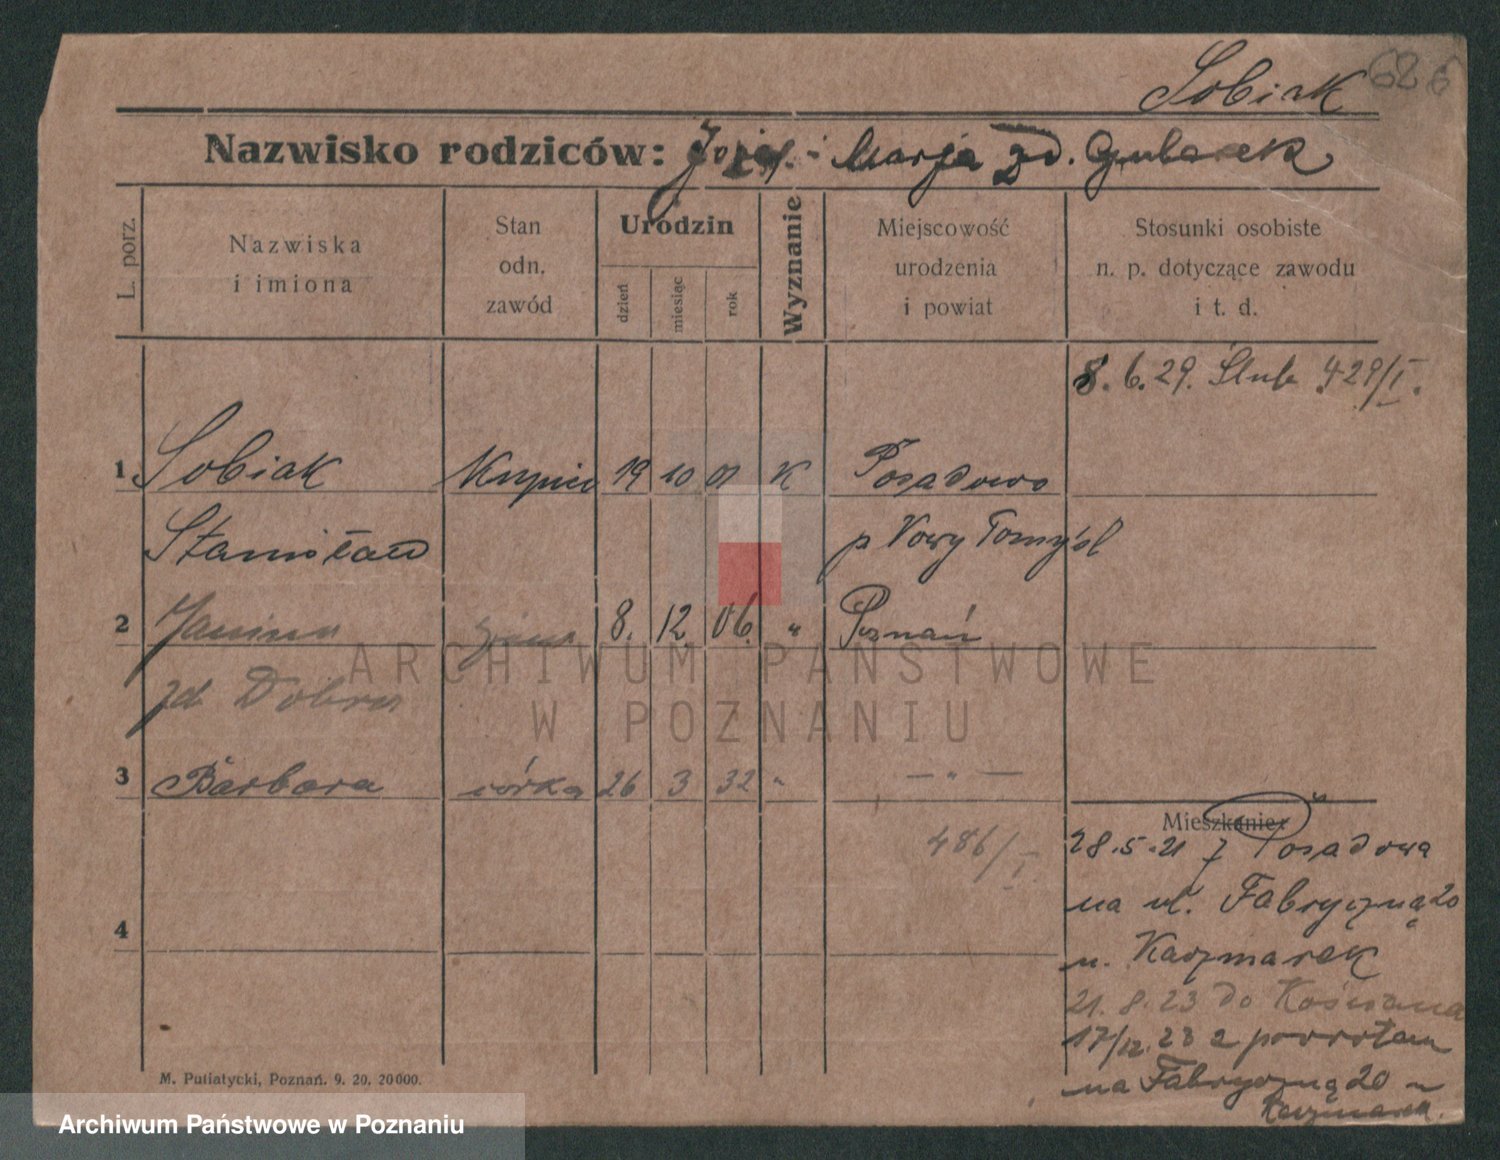 Sobiak 626
Nazwisko rodziców: Józef i Marja zd. Gubarek
L. porz.
Nazwiska
i imiona
Stan
odn.
zawód
Urodzin
dzień
miesiąc
rok
Wyznanie
Miejscowość
urodzenia
i powiat
Stosunki osobiste
n. p. dotyczące zawodu
i t. d.
8. 6. 29. Ślub 429/I.
1 Sobiak Kupiec 19 10 01 K Posadowo
Stanisław p Nowy Tomyśl
2 Janina żona 8. 12 06. " Poznań
zd. Dobra
3 Barbara córka 26 3 32 " — " —
Mieszkanie:
486/I.
28.5.21 z Posadowa
na ul. Fabryczną 20
4
u. Kaczmarek
21. 8. 23 do Kościana
17/12. 23 z powrotem
na Fabryczną 20 u
Kaczmarek.
M. Putiatycki, Poznań. 9. 20. 20000.
ARCHIWUM PAŃSTWOWE
W POZNANIU
Archiwum Państwowe w Poznaniu